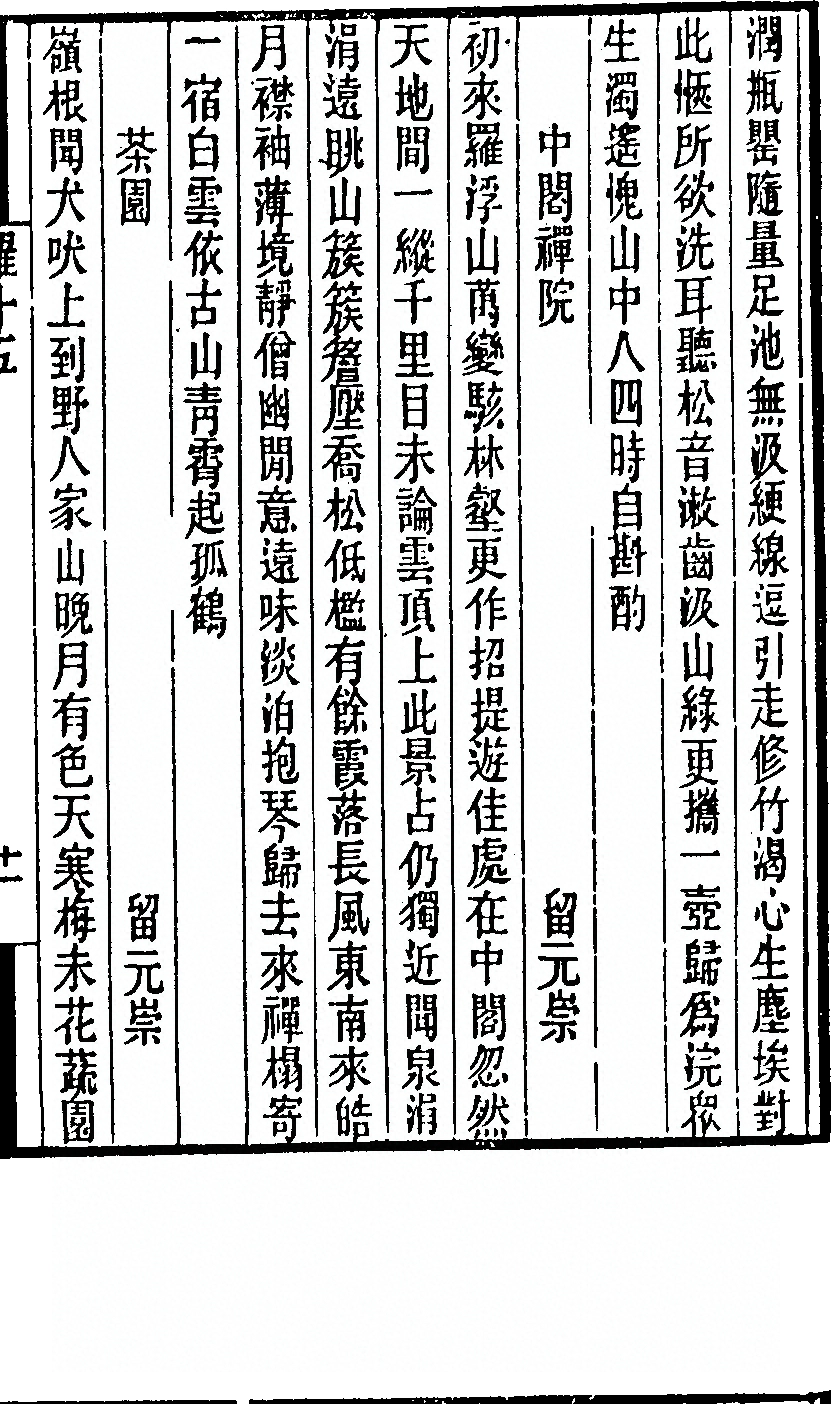 潤瓶罌隨量足池無汲綆線逗引走修竹渴心生塵埃對
此愜所欲洗耳聽松音漱齒汲山綠更攜一壺歸為浣眾
生濁遙愧山中人四時自斟酌
中閣禪院 留元崇
初來羅浮山萬變駭林壑更作招提遊佳處在中閣忽然
天地間一縱千里目未論雲頂上此景占仍獨近聞泉涓
涓遠眺山簇簇簷壓喬松低檻有餘霞落長風東南來皓
月襟袖薄境靜僧幽閒意遠味淡泊抱琴歸去來禪榻寄
一宿白雲依古山青霄起孤鶴
茶園 留元崇
嶺根聞犬吠上到野人家山晚月有色天寒梅未花蔬園
羅十五 十一